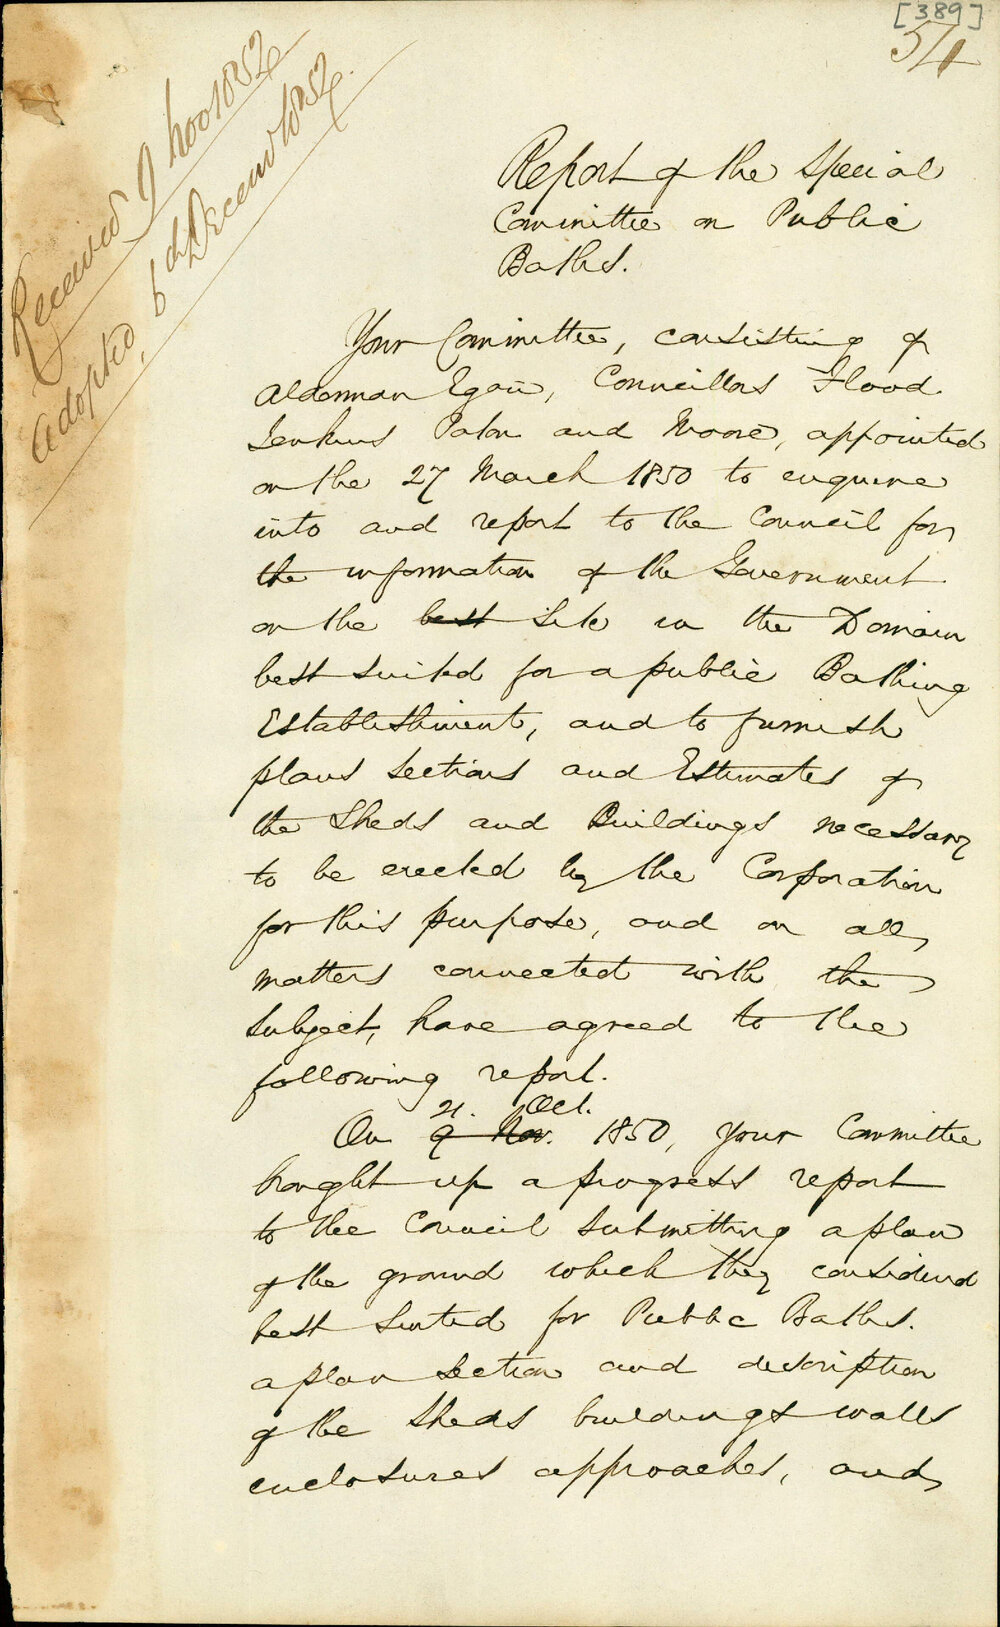 [389]
54
Received 9 Nov 1852
Adopted, 6th Decemr 1852.
Report of the Special
Committee on Public
Baths.
Your Committee, consisting of
Alderman Egan, Councillors Flood
Jenkins Paton and Moore, appointed
on the 27 March 1850 to enquire
into and report to the Council for
the information of the Government
on the best site in the Domain
best suited for a public Bathing
Establishment, and to furnish
plans Sections and Estimates of
the Sheds and Buildings necessary
to be erected by the Corporation
for this purpose, and on all
matters connected with the
subject, have agreed to the
following report.
21. Oct.
On 9 Nov. 1850, your Committee
brought up a progress report
to the Council submitting a plan
of the ground which they considered
best suited for Public Baths.
a plan section and description
of the sheds buildings walls
enclosures approaches, and